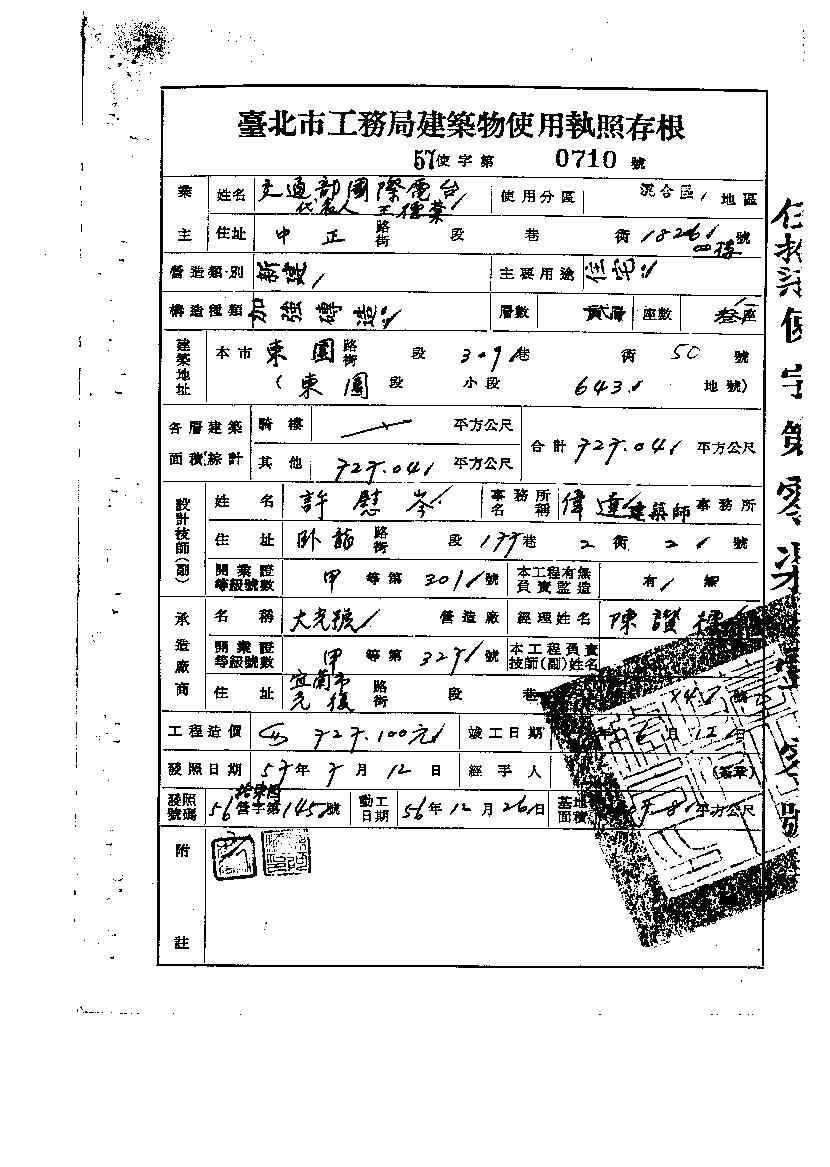 臺北市工務局建築物使用執照存根
57使字第 0710 號
業主 姓名 交通部國際電台 代表人 王德業 使用分區 混合區 地區
住址 中正 路街 段 巷 街 1826 號
營造類別 新建 主要用途 住宅
構造種類 加強磚造 層數 貳層 座數 叁座
建築地址 本市 東園 路街 段 309 巷 街 50 號
(東園 段 小段 643 地號)
各層建築面積綜計 騎樓 平方公尺 合計 727.04 平方公尺
其他 727.04 平方公尺
設計技師(副) 姓名 許慰岑 事務所名稱 偉達建築師 事務所
住址 臥龍 路街 段 177 巷 2 衖 21 號
開業證等級號數 甲 等第 301 號 本工程有無負責監造 有
承造廠商 名稱 大光號 營造廠 經理姓名 陳讚標
開業證等級號數 甲 等第 327 號 本工程負責技師(副)姓名
住址 宜蘭市光復 路街 段 巷 號
工程造價 727.100元 竣工日期 6月12日
發照日期 57年7月12日 經手人 (簽章)
發照號碼 56 營字第145號 動工日期 56年12月26日 基地面積 平方公尺
附註
伍拾柒使字第零柒壹零號